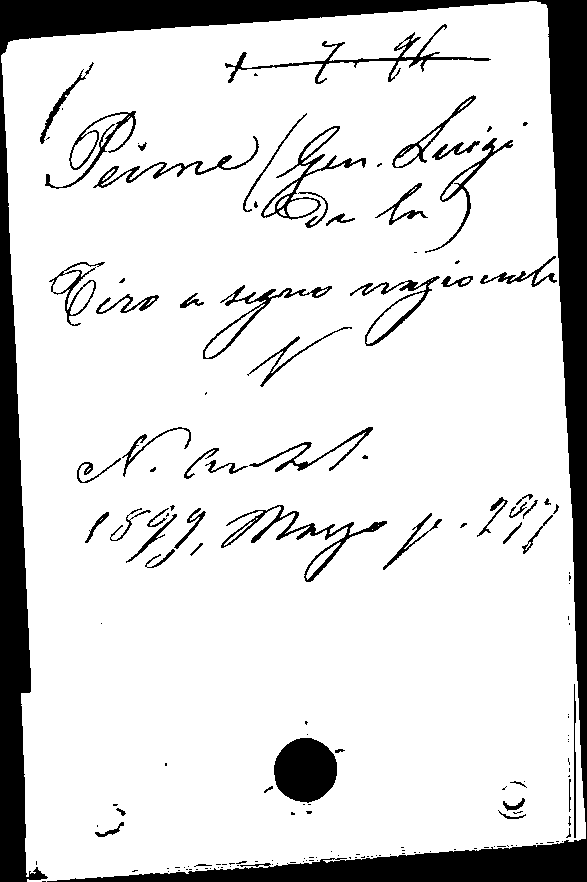 1. 7. 94
Peirne (Gen. Luigi
De la)
Tiro a segno nazionale
N
N. Antol.
1899, Marzo p. 297